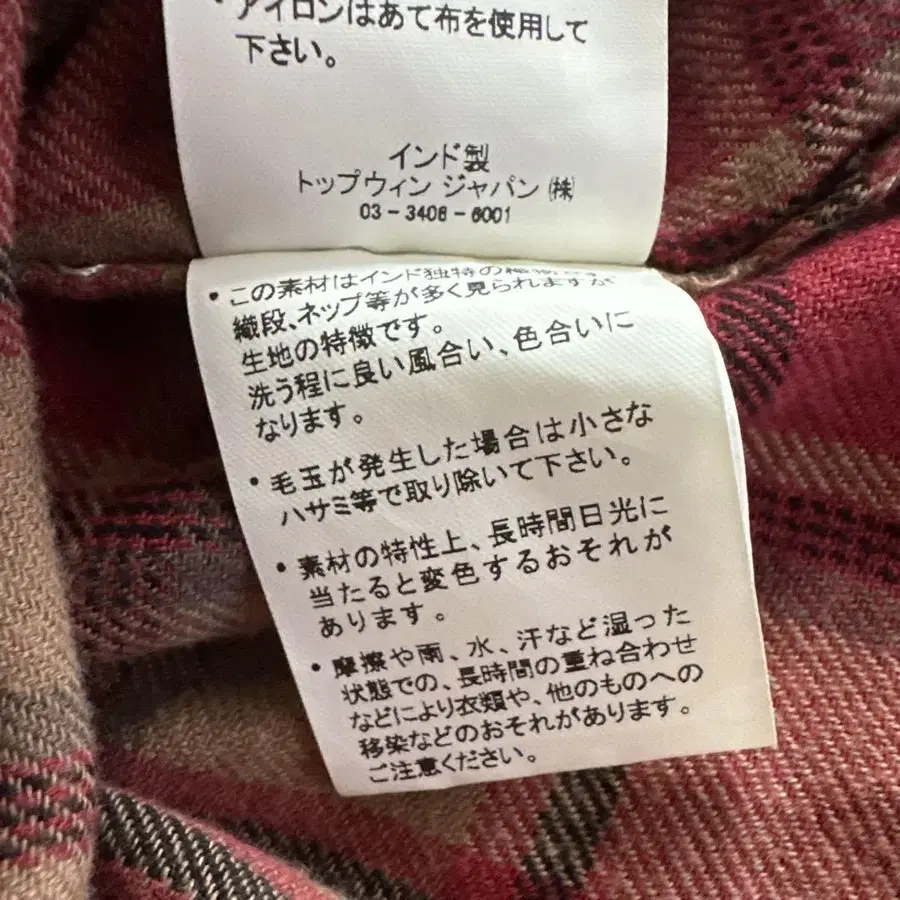 ・アイロンはあて布を使用して
下さい。
インド製
トップウィン ジャパン ㈱
03-3406-6001
・この素材はインド独特の
織段、ネップ等が多く見られますが
生地の特徴です。
洗う程に良い風合い、色合いに
なります。
・毛玉が発生した場合は小さな
ハサミ等で取り除いて下さい。
・素材の特性上、長時間日光に
当たると変色するおそれが
あります。
・摩擦や雨、水、汗など湿った
状態での、長時間の重ね合わせ
などにより衣類や、他のものへの
移染などのおそれがあります。
ご注意ください。